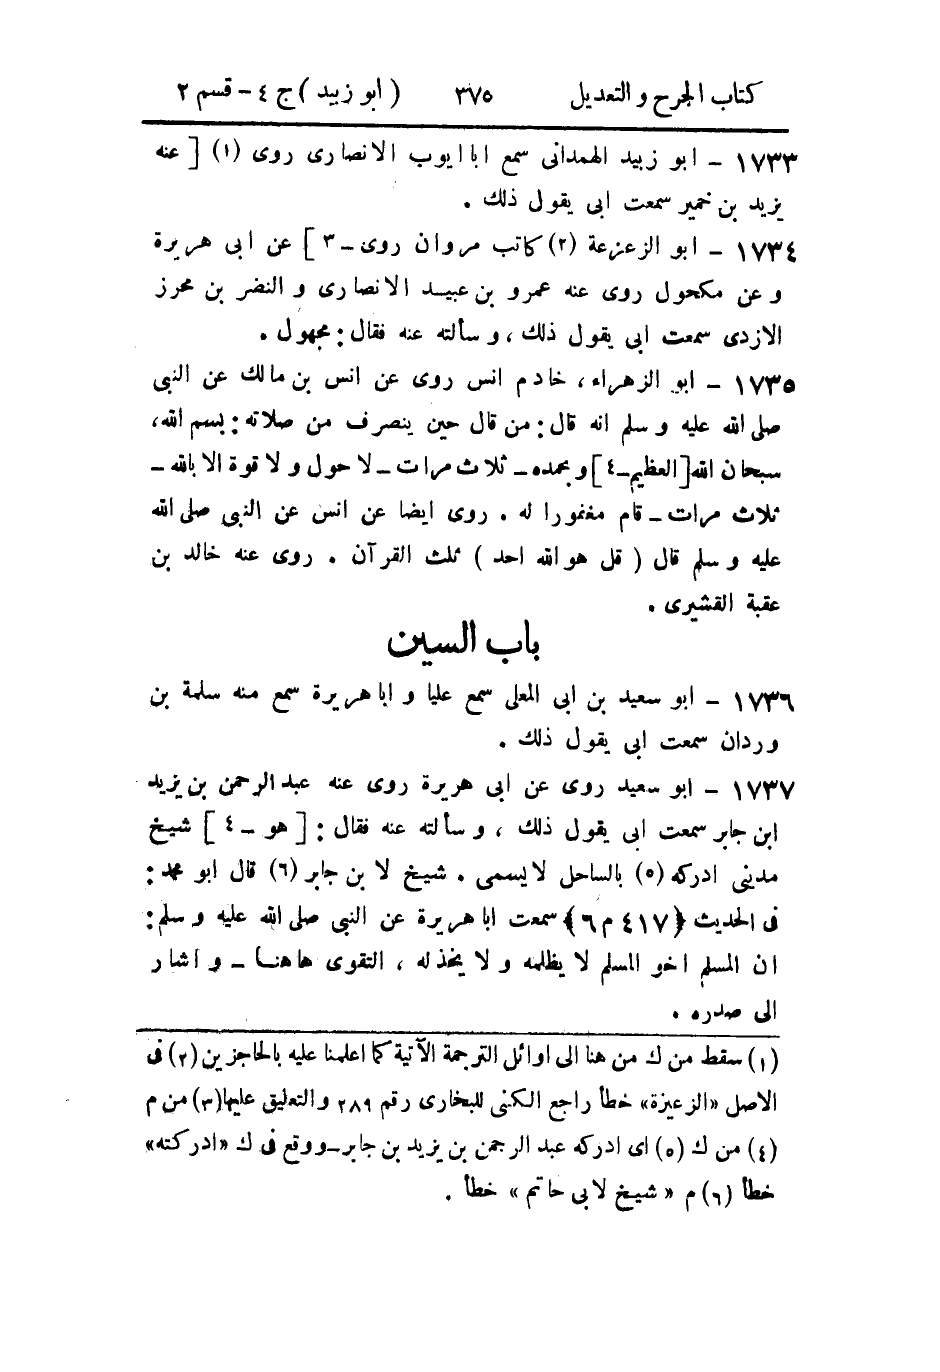 كتاب الجرح والتعديل ٣٧٥ (ابو زبيد) ج ٤ - قسم ٢
١٧٣٣ - ابو زبيد الهمدانى سمع ابا ايوب الانصارى روى (١) [ عنه
يزيد بن خمير سمعت ابى يقول ذلك .
١٧٣٤ - ابو الزعزعة (٢) كاتب مروان روى - ٣ ] عن ابى هريرة
وعن مكحول روى عنه عمرو بن عبيد الانصارى والنضر بن محرز
الازدى سمعت ابى يقول ذلك ، وسألته عنه فقال : مجهول .
١٧٣٥ - ابو الزهراء ، خادم انس روى عن انس بن مالك عن النبى
صلى الله عليه وسلم انه قال : من قال حين ينصرف من صلاته : بسم الله ،
سبحان الله [ العظيم - ٤ ] وبحمده - ثلاث مرات - لا حول ولا قوة الا بالله -
ثلاث مرات - قام مغفورا له . روى ايضا عن انس عن النبى صلى الله
عليه وسلم قال ( قل هو الله احد ) ثلث القرآن . روى عنه خالد بن
عقبة القشيرى .
باب السين
١٧٣٦ - ابو سعيد بن ابى المعلى سمع عليا و ابا هريرة سمع منه سلمة بن
وردان سمعت ابى يقول ذلك .
١٧٣٧ - ابو سعيد روى عن ابى هريرة روى عنه عبد الرحمن بن يزيد
ابن جابر سمعت ابى يقول ذلك ، وسألته عنه فقال : [ هو - ٤ ] شيخ
مدينى ادركه (٥) بالساحل لا يسمى . شيخ لا بن جابر (٦) قال ابو محمد :
فى الحديث ﴿٤١٧ م ٦﴾ سمعت ابا هريرة عن النبى صلى الله عليه وسلم :
ان المسلم اخو المسلم لا يظلمه ولا يخذله ، التقوى ها هنا - و اشار
الى صدره .
(١) سقط من ك من هنا الى اوائل الترجمة الآتية كما اعلمنا عليه بالحاجزين (٢) فى
الاصل «الزعيزة» خطأ راجع الكنى للبخارى رقم ٢٨٩ والتعليق عليها (٣) من م
(٤) من ك (٥) اى ادركه عبد الرحمن بن يزيد بن جابر - ووقع فى ك «ادركته»
خطأ (٦) م « شيخ لابى حاتم » خطأ .